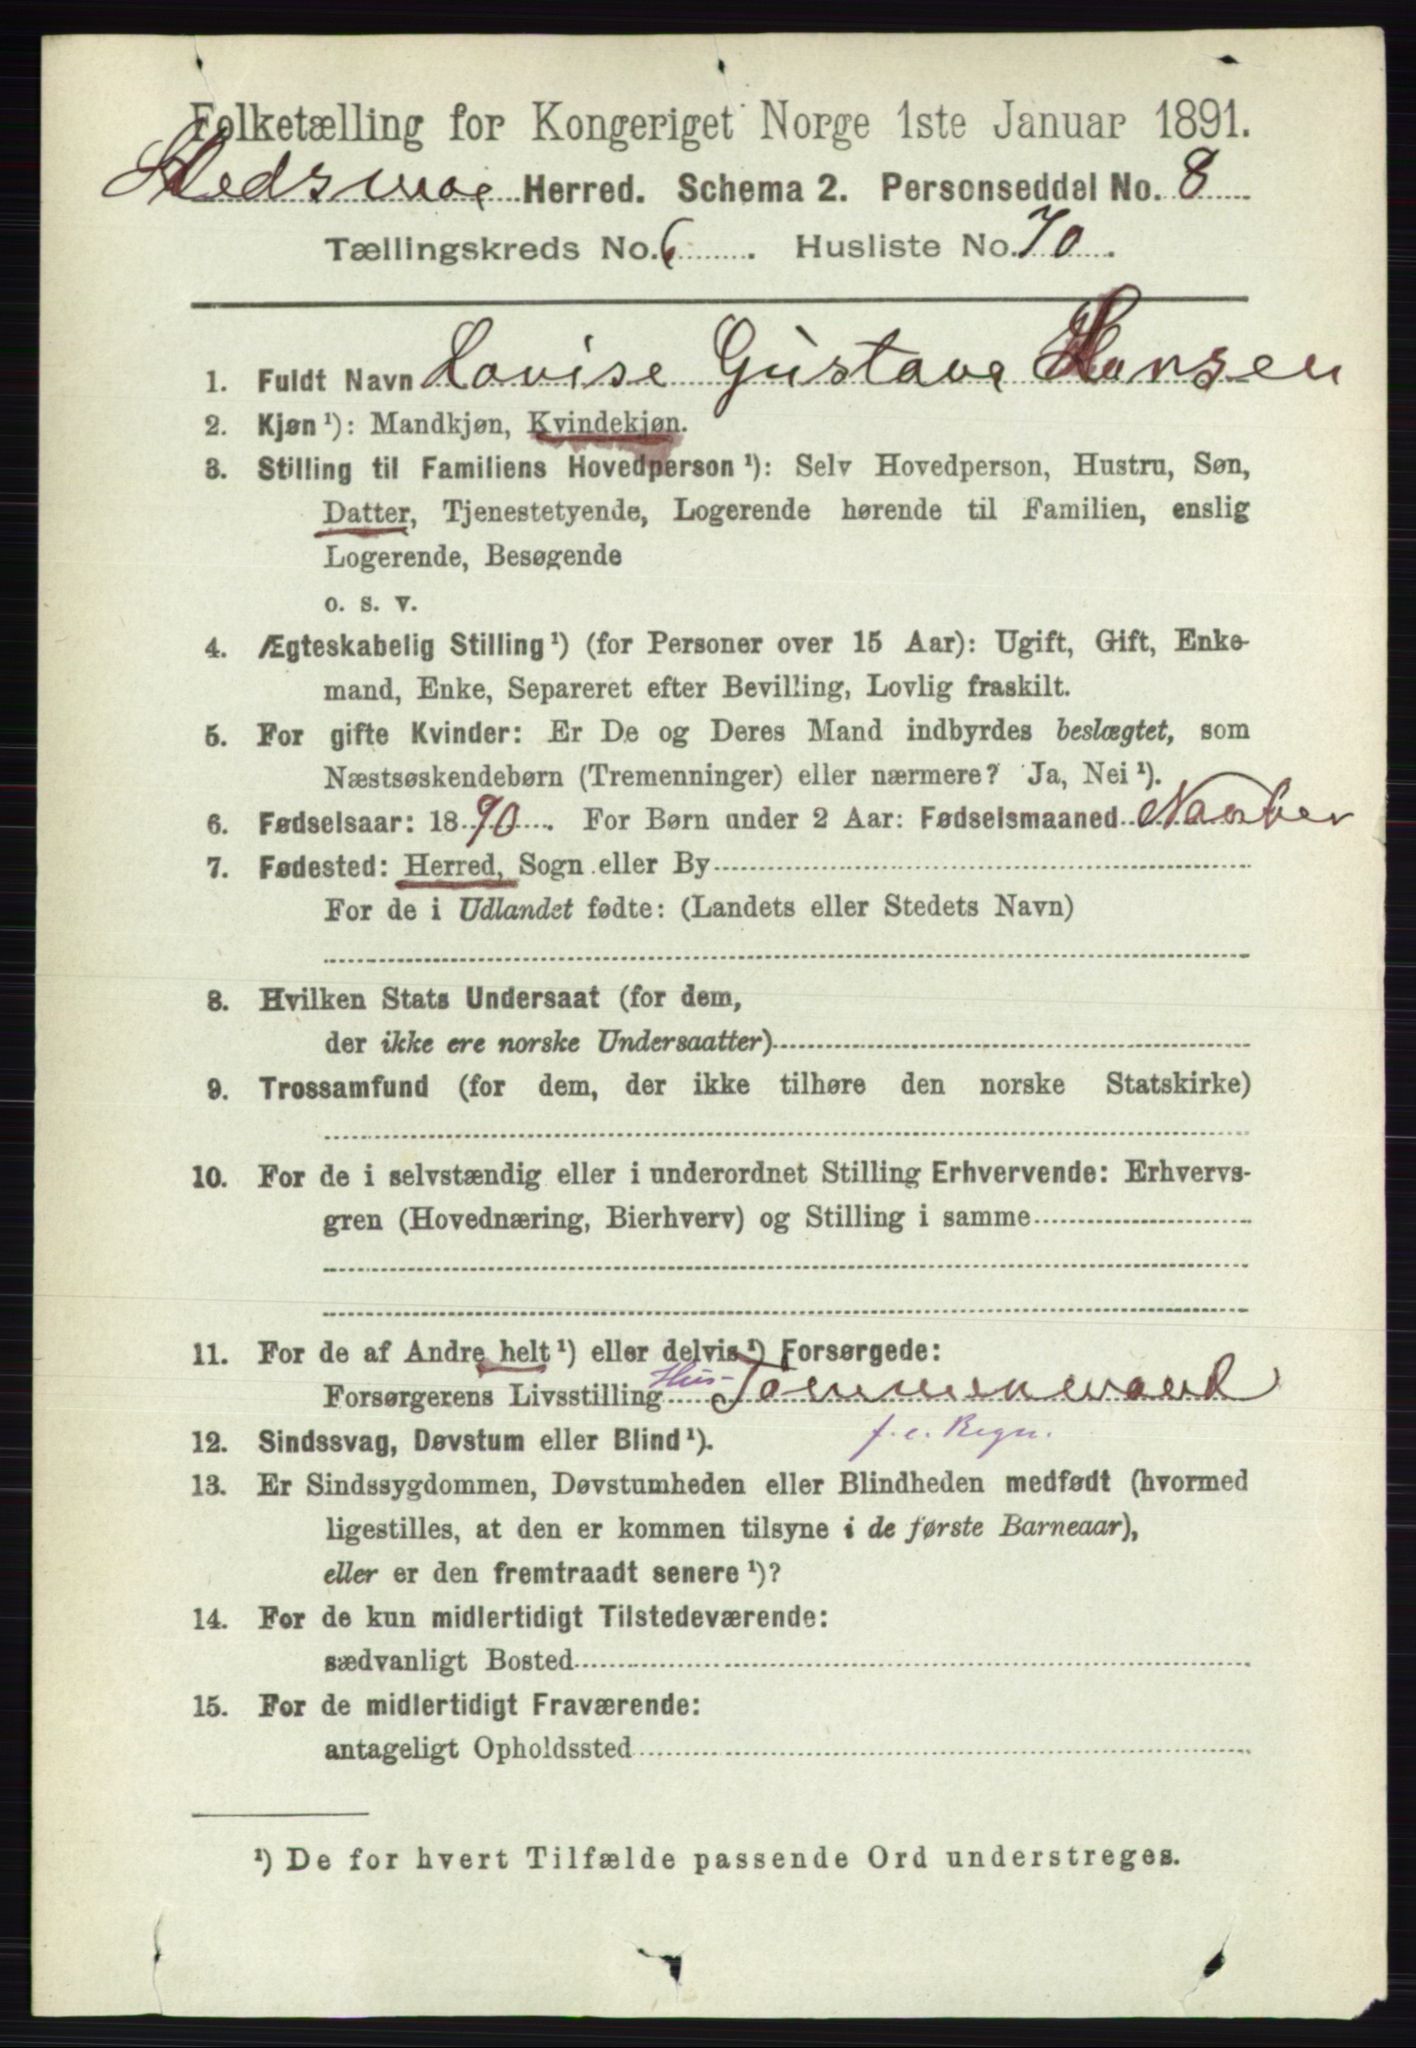 Folketælling for Kongeriget Norge 1ste Januar 1891.
Herred. Schema 2. Personseddel No. 8
Tællingskreds No. 6. Husliste No. 70.
1. Fuldt Navn Lovise Gustava Hansen
2. Kjøn ¹): Mandkjøn, Kvindekjøn.
3. Stilling til Familiens Hovedperson ¹): Selv Hovedperson, Hustru, Søn,
Datter, Tjenestetyende, Logerende hørende til Familien, enslig
Logerende, Besøgende
o. s. v.
4. Ægteskabelig Stilling ¹) (for Personer over 15 Aar): Ugift, Gift, Enke-
mand, Enke, Separeret efter Bevilling, Lovlig fraskilt.
5. For gifte Kvinder: Er De og Deres Mand indbyrdes beslægtet, som
Næstsøskendebørn (Tremenninger) eller nærmere? Ja, Nei ¹).
6. Fødselsaar: 1890. For Børn under 2 Aar: Fødselsmaaned
7. Fødested: Herred, Sogn eller By
For de i Udlandet fødte: (Landets eller Stedets Navn)
8. Hvilken Stats Undersaat (for dem,
der ikke ere norske Undersaatter)
9. Trossamfund (for dem, der ikke tilhøre den norske Statskirke)
10. For de i selvstændig eller i underordnet Stilling Erhvervende: Erhvervs-
gren (Hovednæring, Bierhverv) og Stilling i samme
11. For de af Andre helt ¹) eller delvis ¹) Forsørgede:
Forsørgerens Livsstilling Hus- Tømmermand
12. Sindssvag, Døvstum eller Blind ¹). f. e. Regn.
13. Er Sindssygdommen, Døvstumheden eller Blindheden medfødt (hvormed
ligestilles, at den er kommen tilsyne i de første Barneaar),
eller er den fremtraadt senere ¹)?
14. For de kun midlertidigt Tilstedeværende:
sædvanligt Bosted
15. For de midlertidigt Fraværende:
antageligt Opholdssted
¹) De for hvert Tilfælde passende Ord understreges.